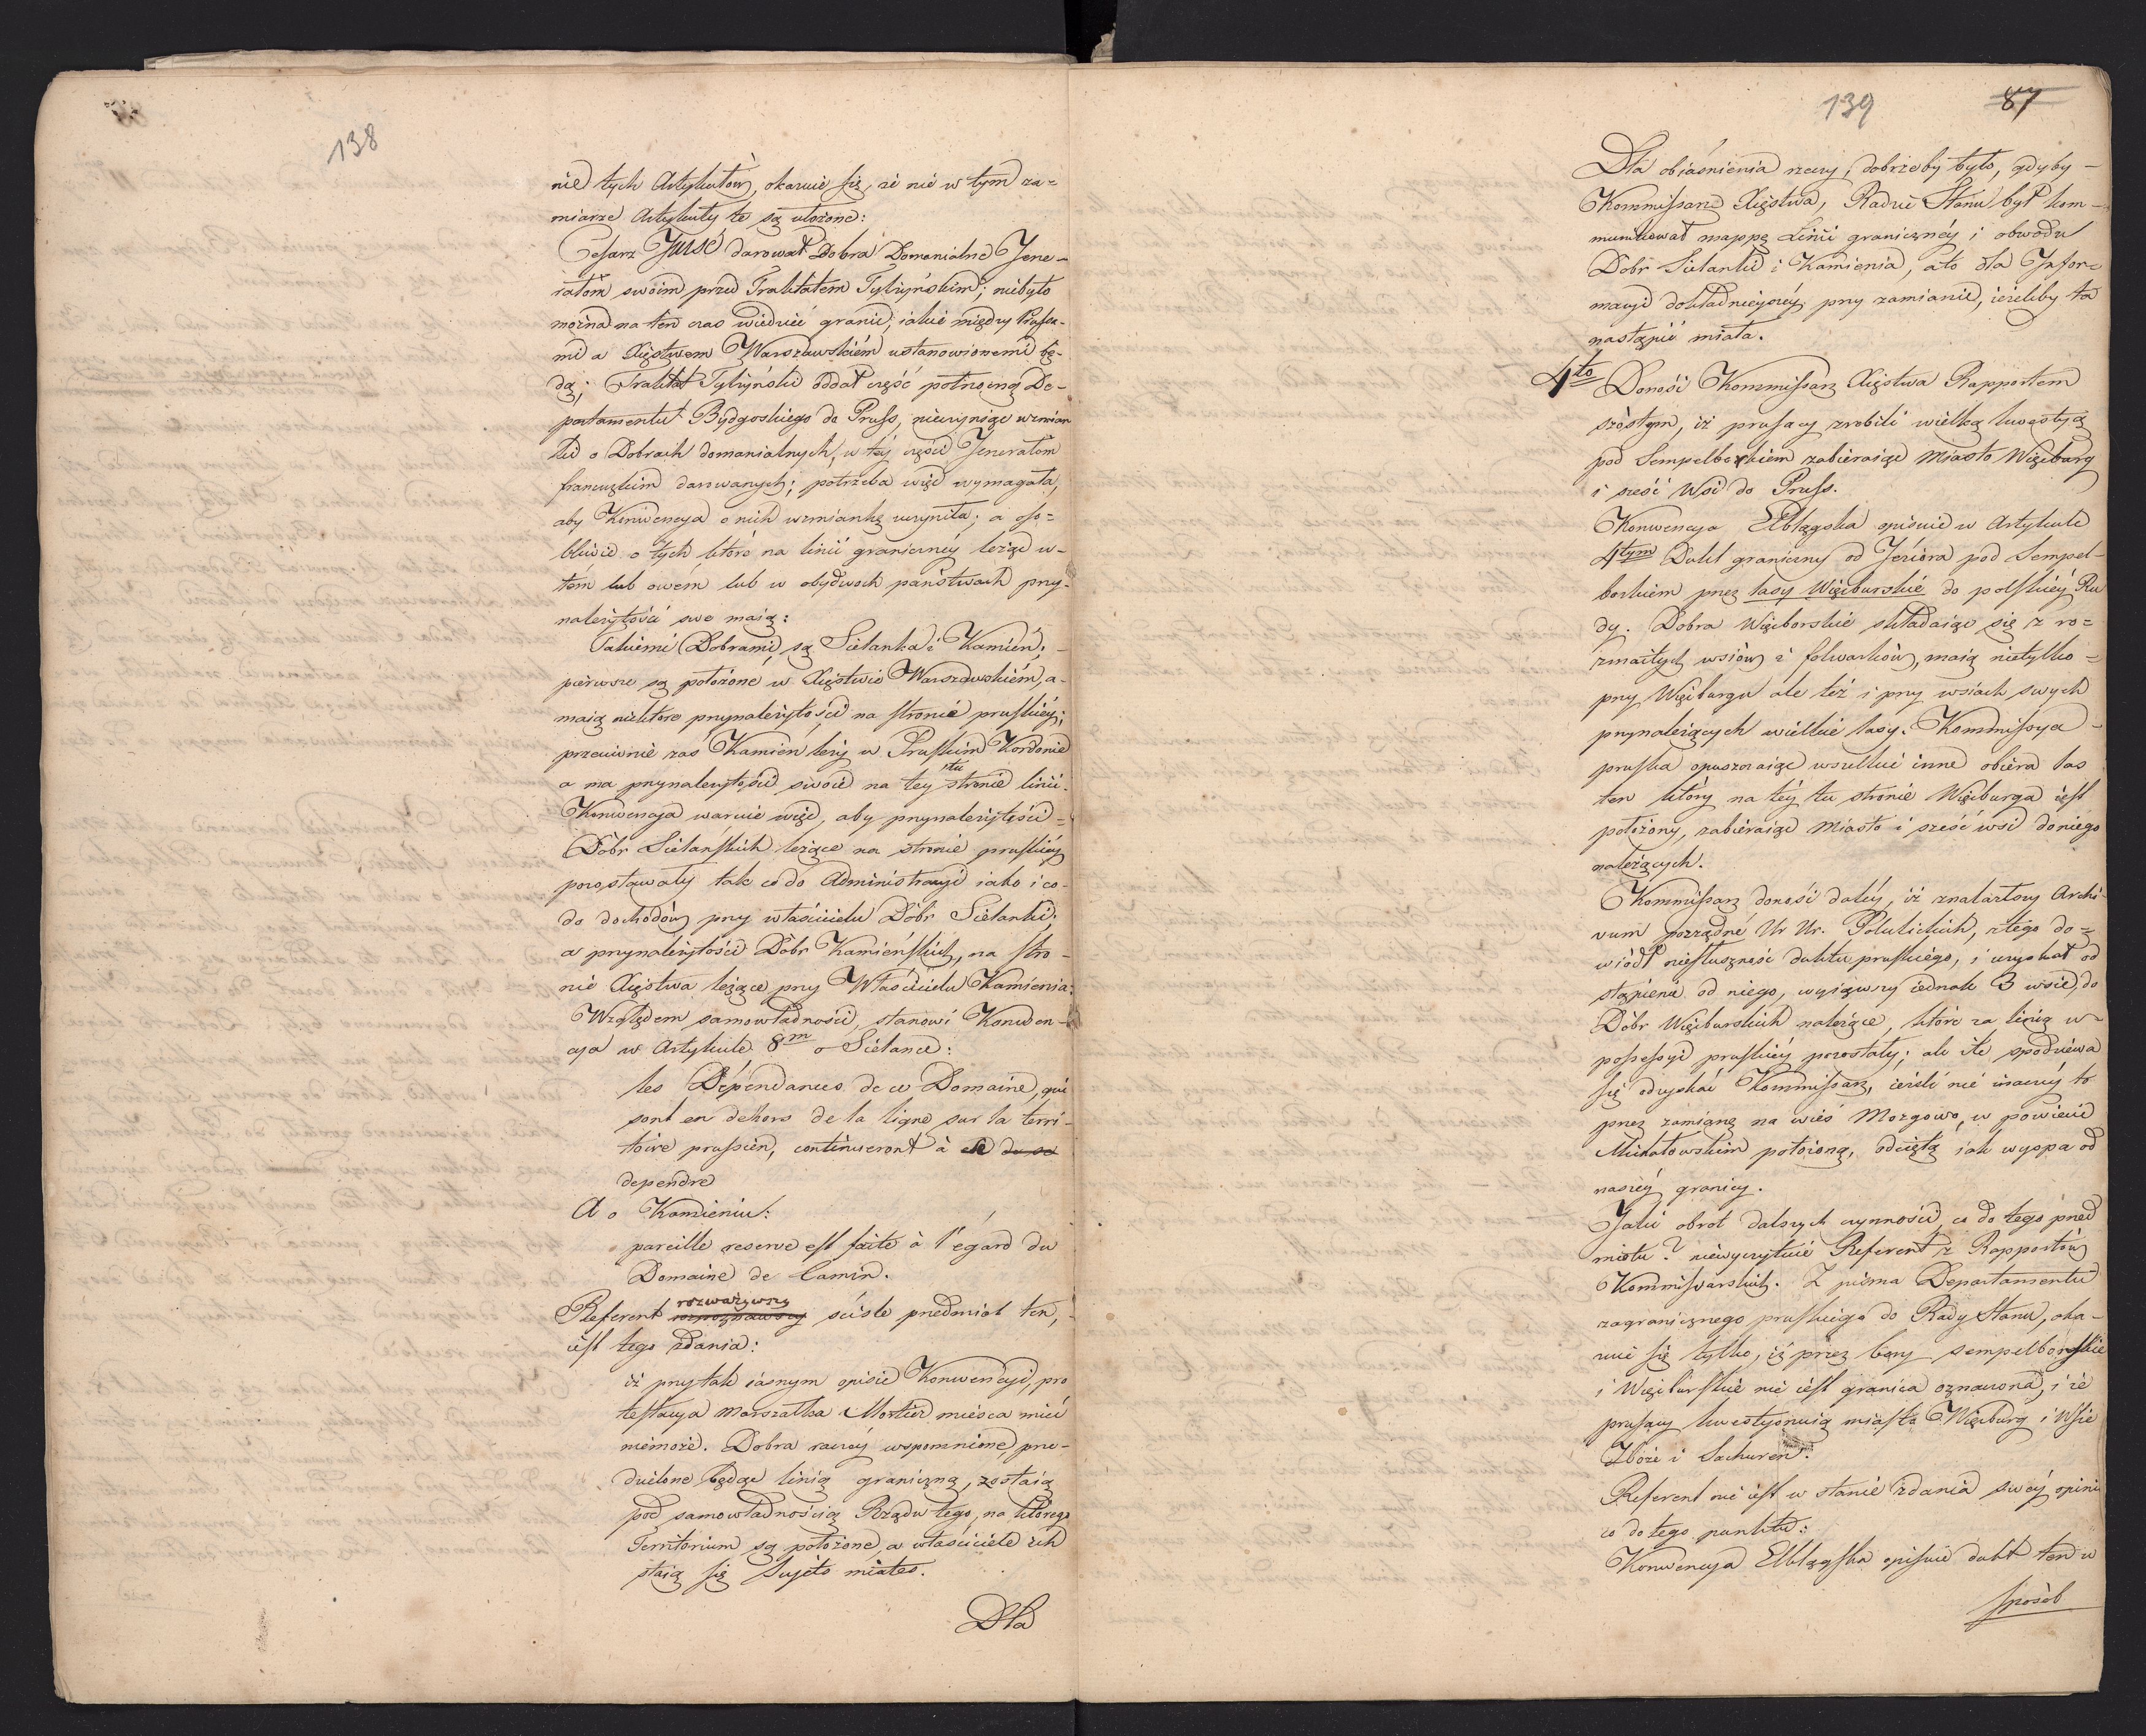 138
nie tych Artykułów, okazuie się, że nie w tym za=
miarze Artykuły te są ułożone:
Cesarz Jmść darował Dobra Domanialne Jene-
rałom swoim przed Traktatem Tylżyńskim; niebyło
można na ten czas wiedzieć granic, iakie między Prusa-
mi a Xięstwem Warszawskiém ustanowionemi bę-
dą; Traktat Tylżyński oddał część północną De-
partamentu Bydgoskiego do Pruss, nieczyniąc wzmian
ki o Dobrach domanialnych, w téj części Jenerałom
francuzkim darowanych; potrzeba więc wymagała,
aby Konwencya o nich wzmiankę uczyniła; a oso=
bliwie o tych które na linii granicznéy leżąc w-
tém lub owém lub w obydwóch państwach przy-
należytości swe maią:
Takiemi Dobrami są Sielanka i Kamień; -
pierwsze są położone w Xięstwie Warszawskiém, a-
maią niektóre przynależytości na stronie pruskiéy;
przeciwnie zaś Kamień leży w Pruskim Kordonie
a ma przynależytości swoie na tey tu stronie linii.
Konwencya waruie więc, aby przynależytości=
Dóbr Sielańskich leżące na stronie pruskiéy
pozostawały tak co do Administracyi iako i co-
do dochodów przy właścicielu Dóbr Sielanki;
a przynależytości Dóbr Kamieńskich, na stro-
nie Xięstwa leżące przy Właścicielu Kamienia.
Względem samowładności, stanowi Konwen-
cya w Artykule 8m o Sielance:
les Dépendances de ce Domaine, qui
sont en dehors de la ligne sur la terri-
toire prussien, continueront à
dependre
A o Kamieniu:
pareille reserve est faite à l'égard du
Domaine de Camin.
Referent rozważywszy ściśle przedmiot ten, -
iest tego zdania:
iż przy tak iasnym opisie Konwencyi, pro
testacya Marszałka Mortier mieisca mieć
niemoże. Dobra raczéy wspomnione prze-
dzielone będąc linią graniczną, zostaią
pod samowładnością Rządu tego, na którego
Territorium są położone, a właściciele ich
staią się Sujets mixtes.
Dla
139 87
Dla obiaśnienia rzeczy, dobrzeby było, gdyby -
Kommissarz Xięstwa, Radzie Stanu był kom-
munikował mappę Linii granicznéy i obwodu
Dobr Sielanki i Kamienia, a to dla Infor=
macyi dokładnieyszéy przy zamianie, ieżeliby ta
nastąpić miała.
4to Donosi Kommissarz Xięstwa Rapportem
szóstym, iż prusacy zrobili wielką kwestyą
pod Sempelborkiem zabieraiąc Miasto Więcburg
i sześć Wsi do Pruss.
Konwencya Elblągska opisuie w Artykule
4tym Dukt graniczny od Jeziora pod Sempel-
borkiem przez lasy Więcburskie do polskiéy Ru
dy. Dobra Więcborskie składaiąc się z ro=
zmaitych wsiów i folwarków, maią nietylko=
przy Więcburgu ale też i przy wsiach swych
przynależących wielkie lasy. Kommissya -
pruska opuszczaiąc wszelkie inne obiera las
ten który na téy tu stronie Więcburga iest
położony, zabieraiąc Miasto i sześć wsi do niego
należących.
Kommissarz donosi daléy, iż znalazłszy Archi-
vum porządne Ur Ur. Potulickich, z tego do=
wiódł niesłuszność duktu pruskiego, i uzyskał od
stąpienie od niego, wyiąwszy iednak 3 wsie, do
Dóbr Więcburskich należące, które za linią w-
possessyi pruskiéy pozostały; ale i te spodziewa
się odzyskać Kommissarz, ieśli nie inaczéy to
przez zamianę na wieś Mozgowo, w powiecie
Michałowskim położoną, odciętą iak wyspa od
naszéy granicy.
Jaki obrot dalszych czynności, co do tego przed
miotu? niewyczytuie Referent z Rapportów
Kommissarskich. Z pisma Departamentu
zagranicznego pruskiego do Rady Stanu, oka-
zuie się tylko, iż przez bory sempelborskie
i Więcburskie nie iest granica oznaczona, i że
prusacy kwestyonuią miasta Więcburg i Wsie
Zboże i Suchoren.
Referent nie iest w stanie zdania swéy opinii
co do tego punktu:
Konwencya Elblągska opisuie dukt ten w
sposób